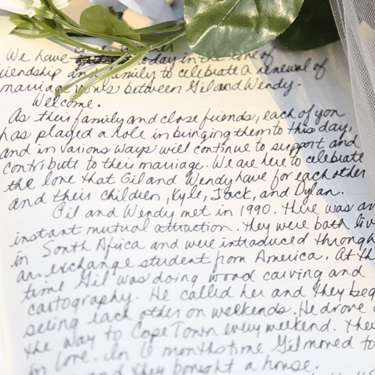 We have today in the name of
friendship and family to celebrate a renewal of
marriage vows between Gil and Wendy.
Welcome.
As their family and close friends, each of you
has played a role in bringing them to this day,
and in various ways will continue to support and
contribute to their marriage. We are here to celebrate
the love that Gil and Wendy have for each other
and their children, Kyle, Jack, and Dylan.
Gil and Wendy met in 1990. There was an
instant mutual attraction. They were both livi
in South Africa and were introduced through
an exchange student from America. At th
time Gil was doing wood carving and
cartography. He called her and they beg
seeing each other on weekends. He drove a
the way to Cape Town every weekend. They
in love. In 6 months time Gil moved to
and they bought a house.